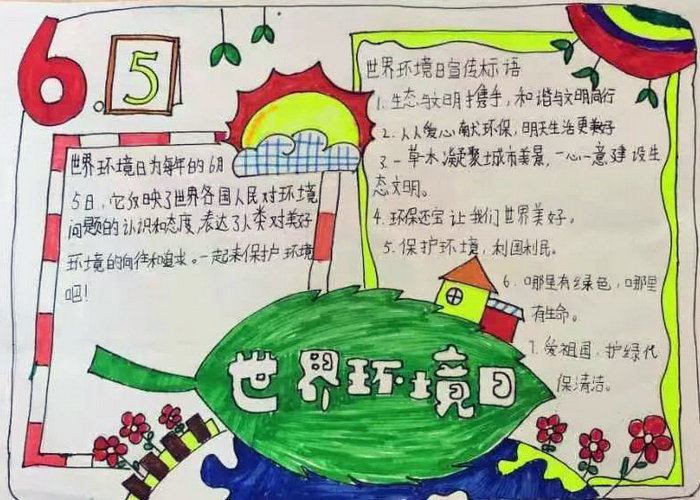 6.5
世界环境日为每年的6月
5日,它反映了世界各国人民对环境
问题的认识和态度,表达了人类对美好
环境的向往和追求。一起来保护环境
吧!
世界环境日宣传标语
1.生态与文明携手,和谐与文明同行
2.人人爱心献环保,明天生活更美好
3.一草木凝聚城市美景,一心一意建设生
态文明。
4.环保还宝让我们世界美好。
5.保护环境,利国利民。
6.哪里有绿色,哪里
有生命。
7.爱祖国,护绿代
保清洁。
世界环境日